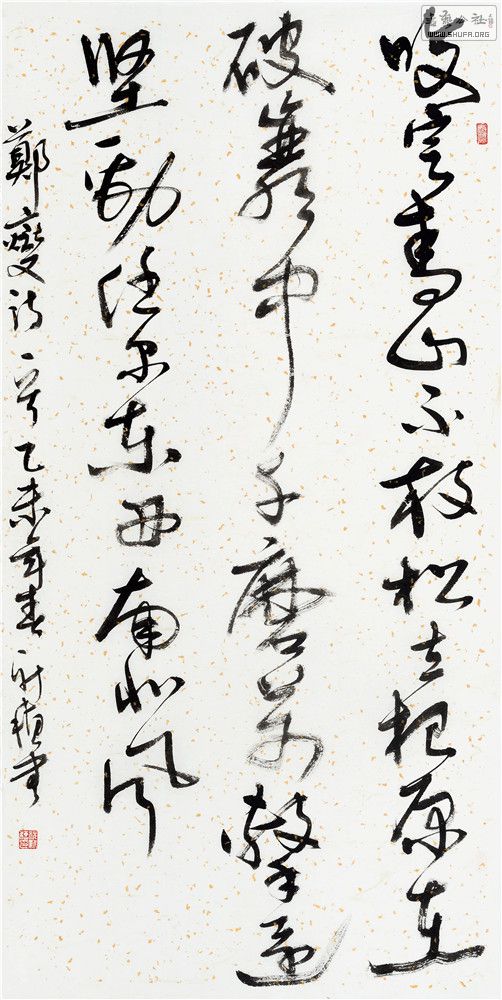 咬定青山不放松立根原在
破巖中千磨萬擊還
坚劲任尔东西南北风
鄭燮诗一首乙未年春 书
公社
WWW.SHUFA.ORG